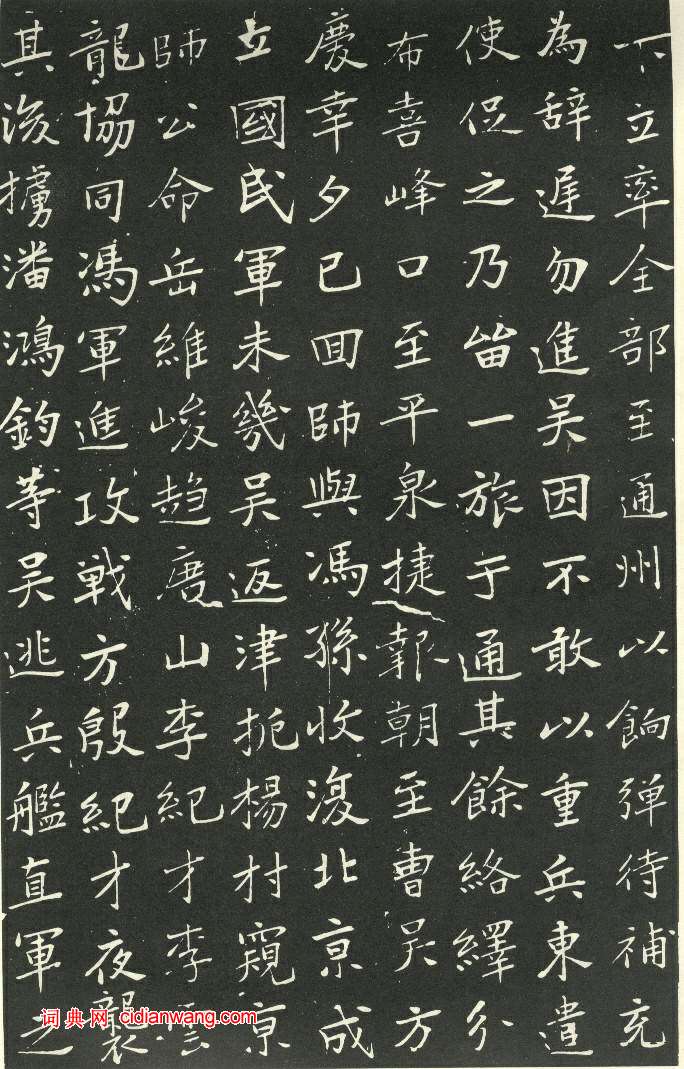 下立率全部至通州以餉彈待補充
為辞遲勿進吴因不敢以重兵東遣
使促之乃畱一旅于通其餘絡繹分
布喜峰口至平泉捷報朝至曹吴方
慶幸夕已回師與馮孫收復北京成
立國民軍未幾吴返津扼楊村窺京
師公命岳維峻趋唐山李紀才李雲
龍協同馮軍進攻戦方殷紀才夜襲
其後擄潘鴻鈞等吴逃兵艦直軍之
词典网 cidianwang.com